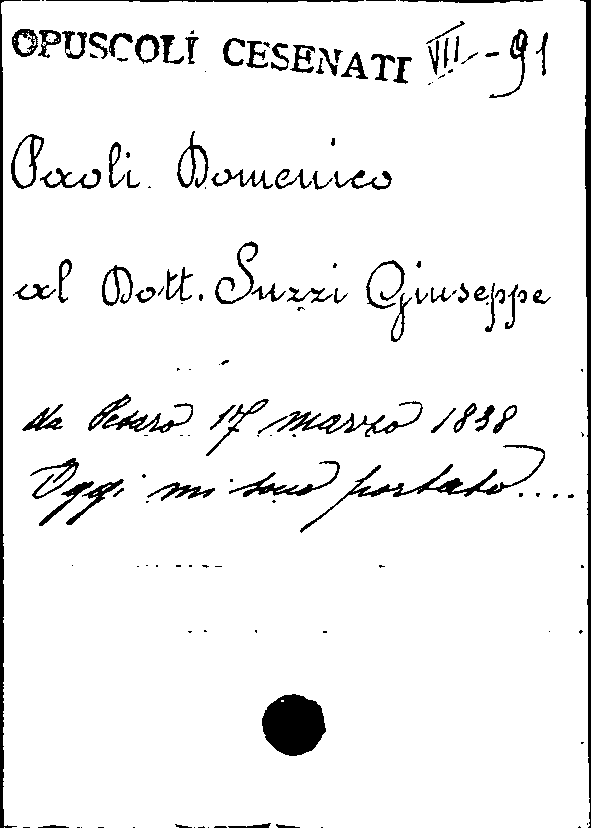 OPUSCOLI CESENATI VII-91
Paoli Domenico
al Dott. Suzzi Giuseppe
da Pesaro 17 marzo 1838
Oggi mi sono portato....